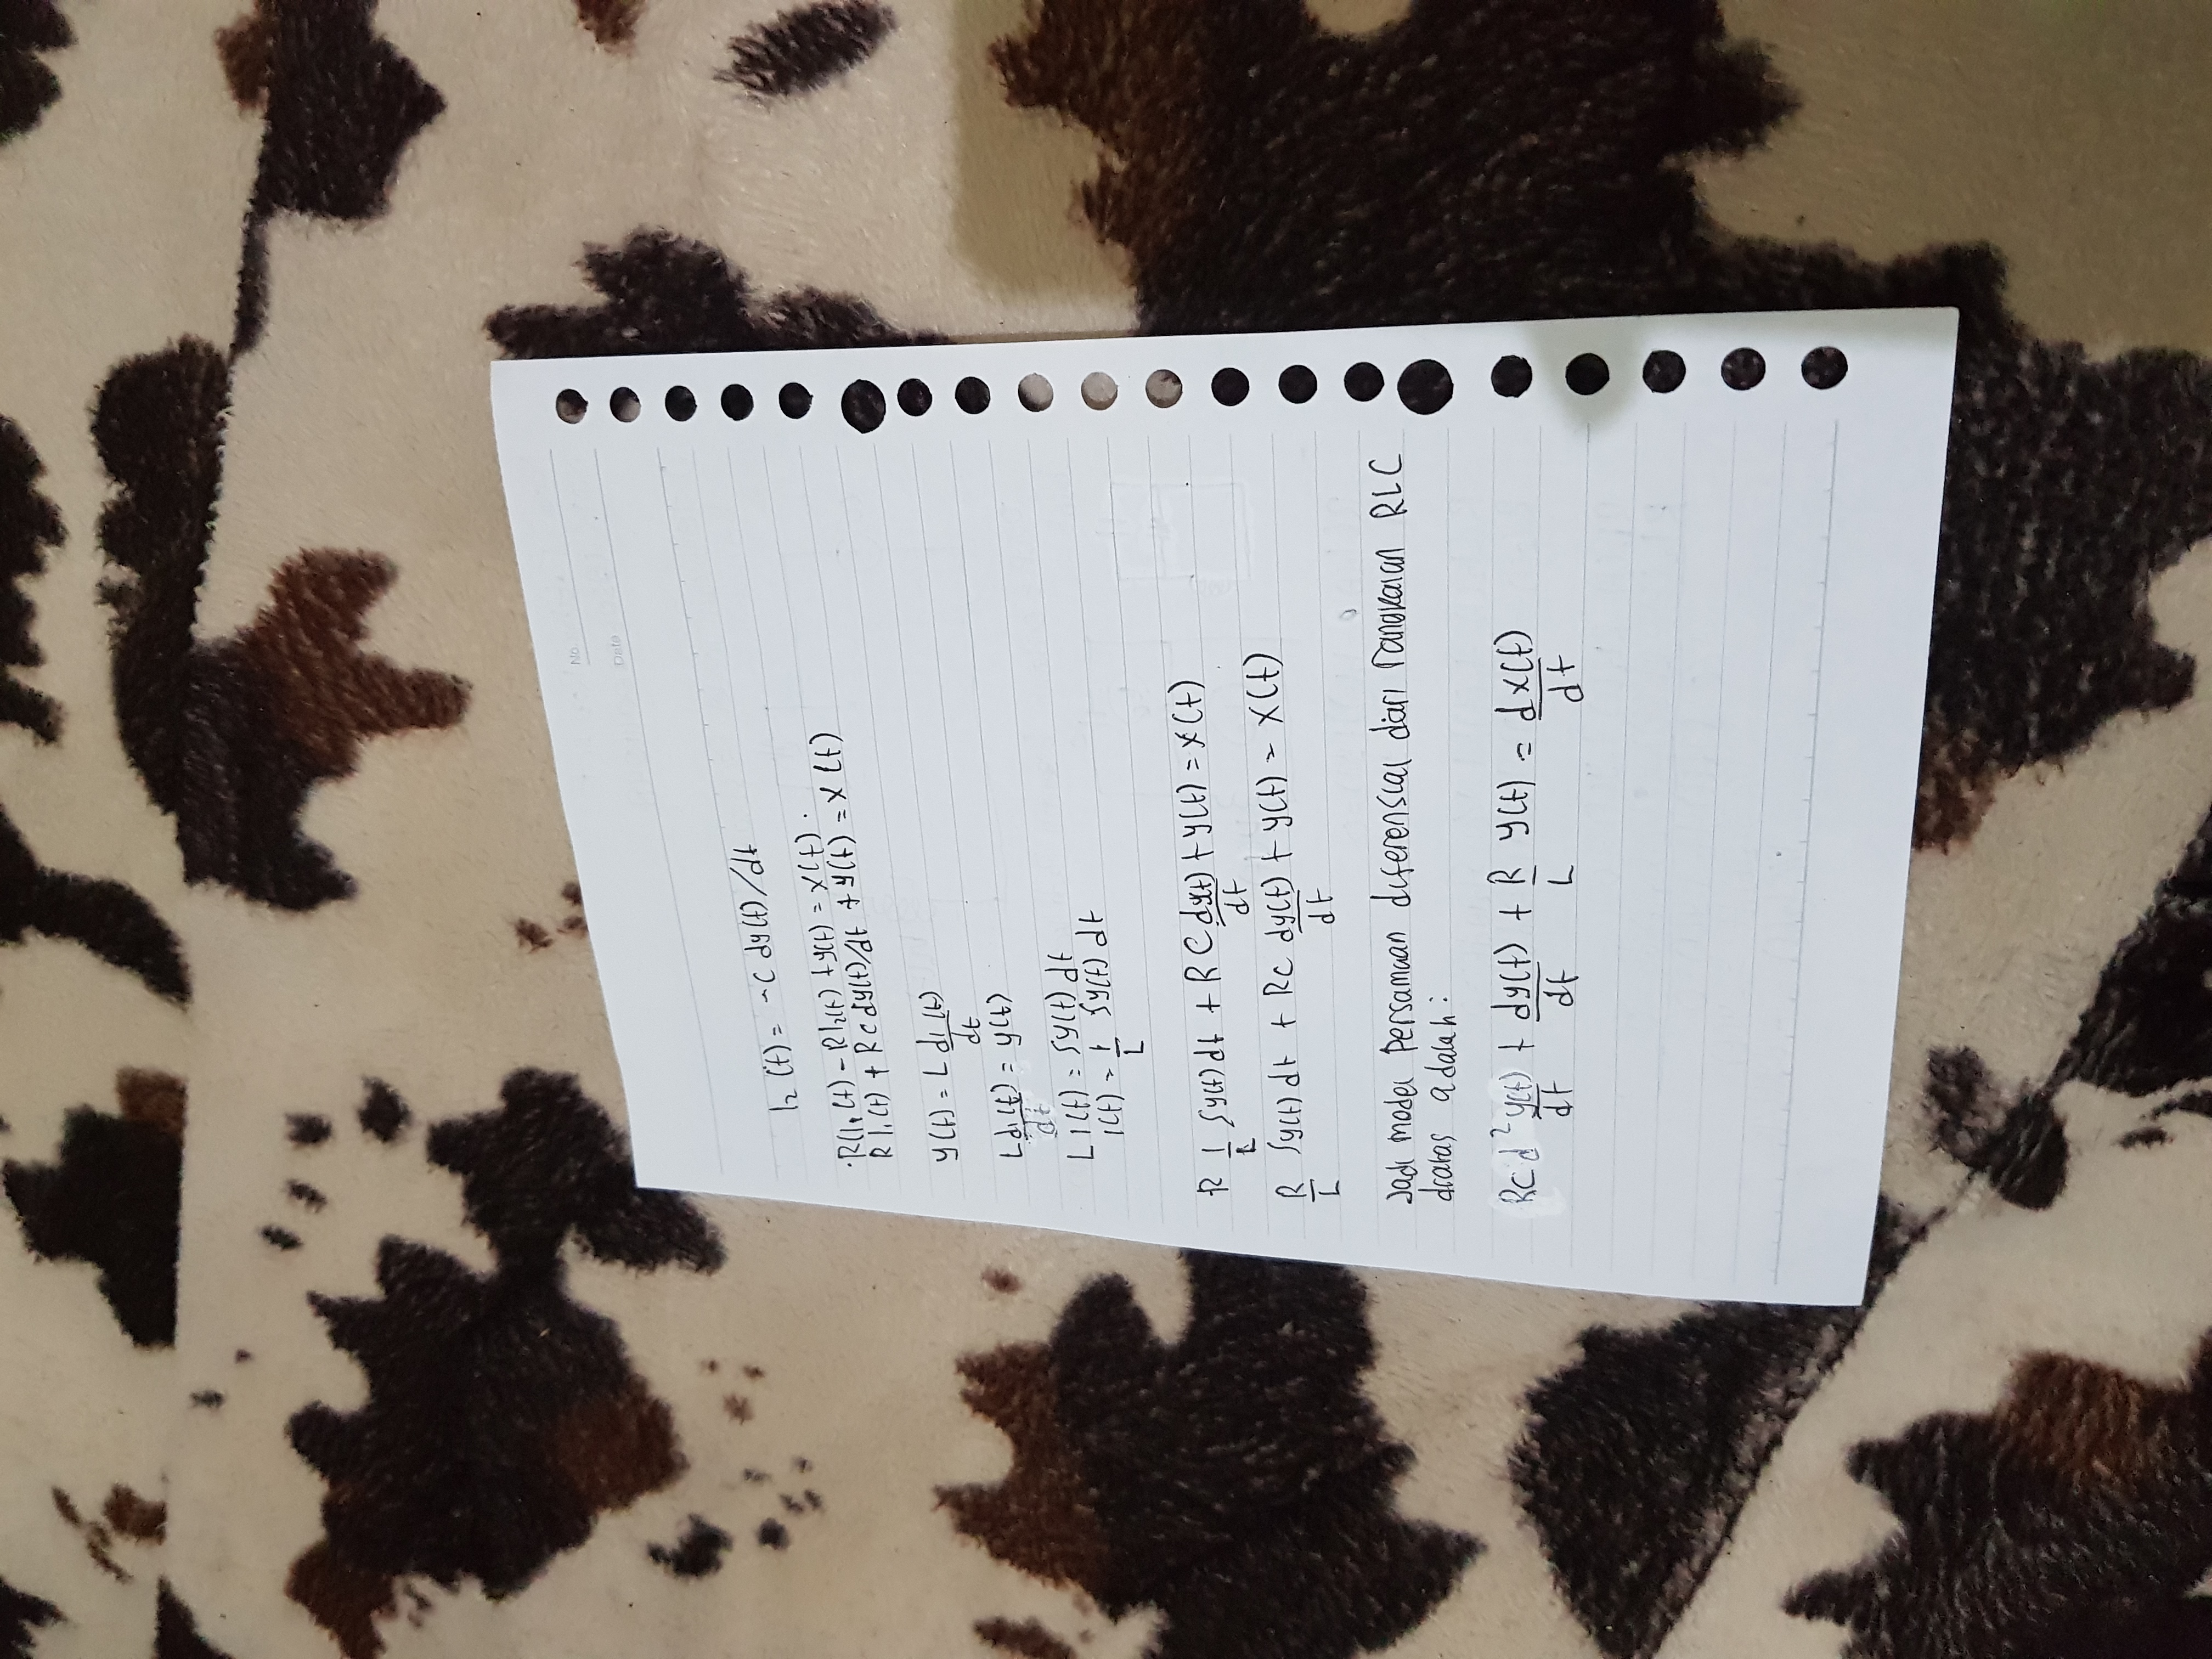 No.
Date
I₂ (t) = -C dy(t)/dt
·R(I₁(t) - RI₂(t) + y(t) = x(t).
R I₁(t) + RC dy(t)/dt + y(t) = x(t)
y(t) = L dI(t)/dt
L dI(t)/dt = y(t)
L I(t) = ∫y(t) dt
I(t) = 1/L ∫y(t) dt
R 1/L ∫y(t) dt + R C dy(t)/dt + y(t) = x(t)
R/L ∫y(t) dt + RC dy(t)/dt + y(t) = x(t)
Jadi model persamaan diferensial dari rangkaian RLC
diatas adalah:
RC d² y(t)/dt + dy(t)/dt + R/L y(t) = dx(t)/dt